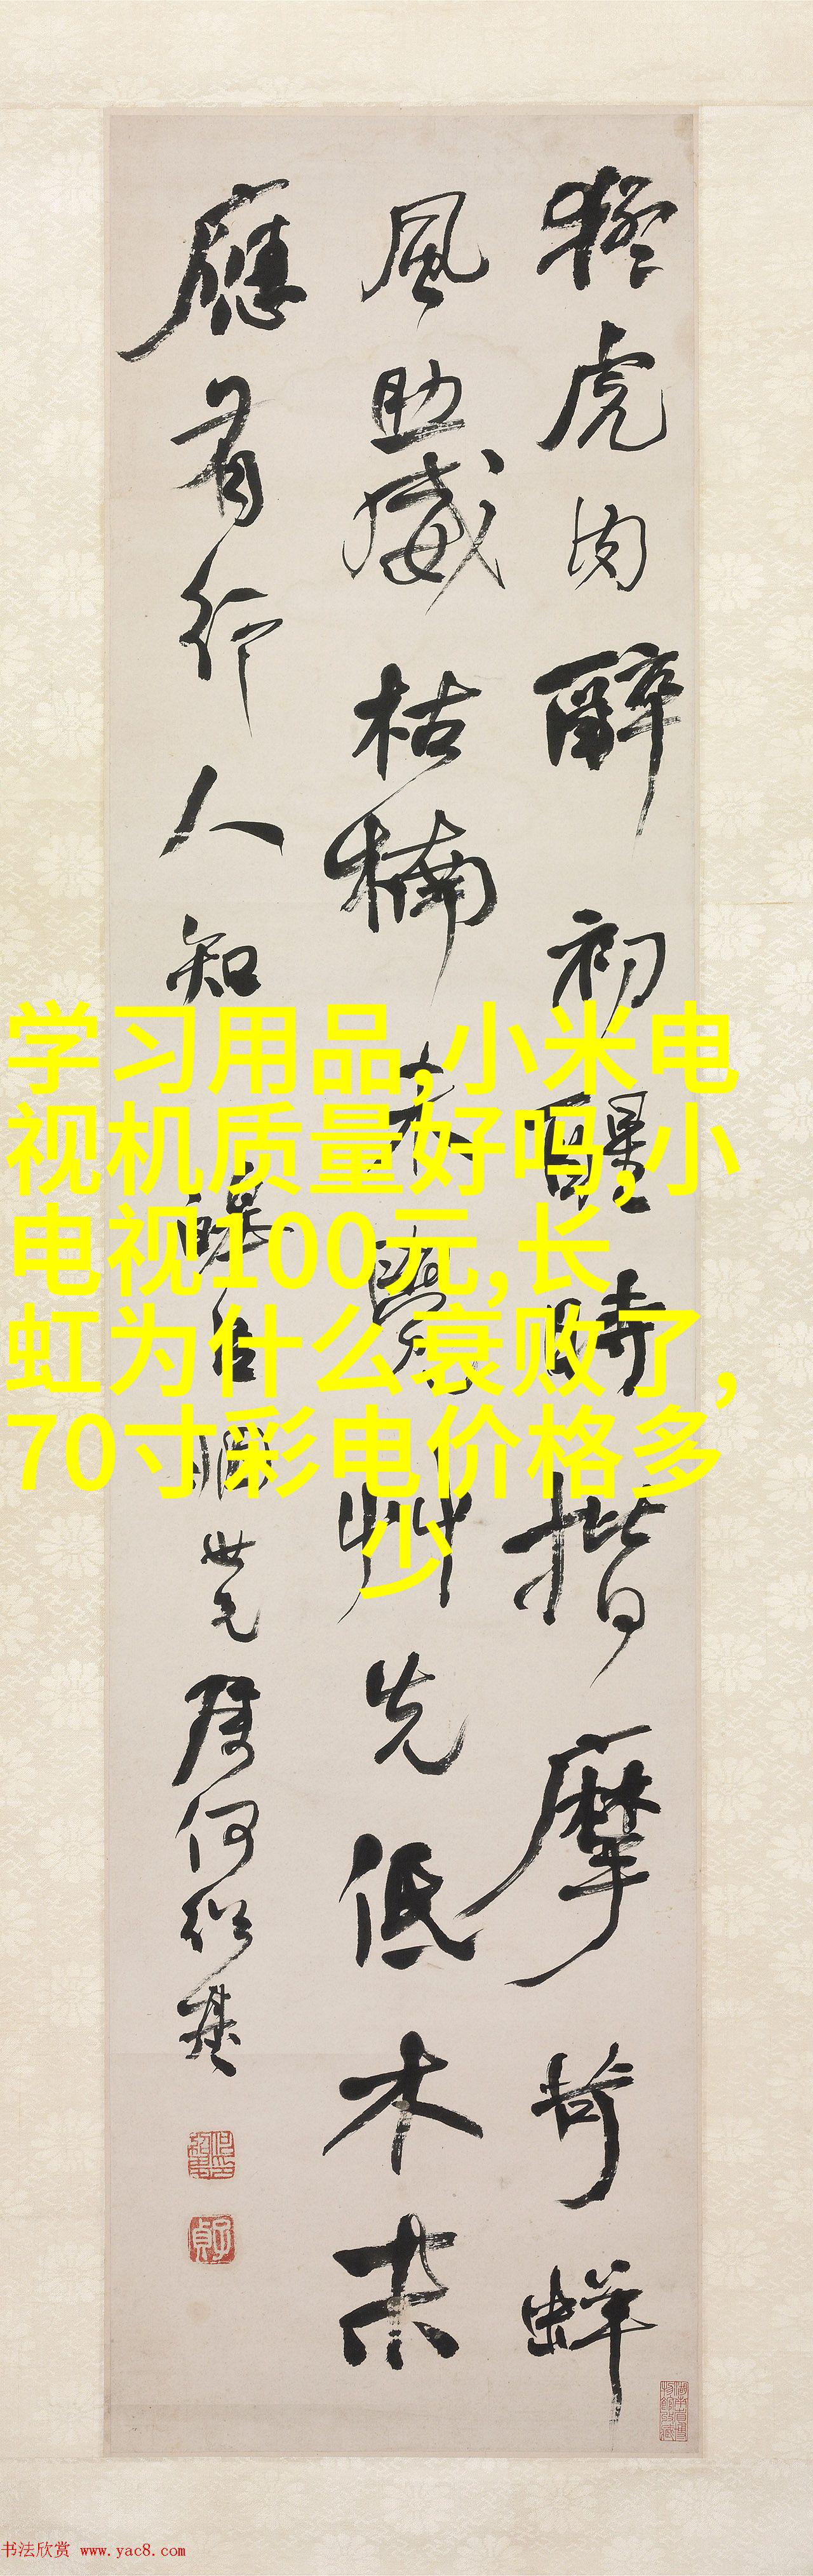 猛虎肉醉初醒時揩摩苛蛘
風助威枯楠未覺艸先低木末
應有行人知
世兄屬何紹基
子貞
学习用品,小米电
视机质量好吗,小
电视100元,长
虹为什么衰败了,
70寸彩电价格多
少
书法欣赏 www.yac8.com